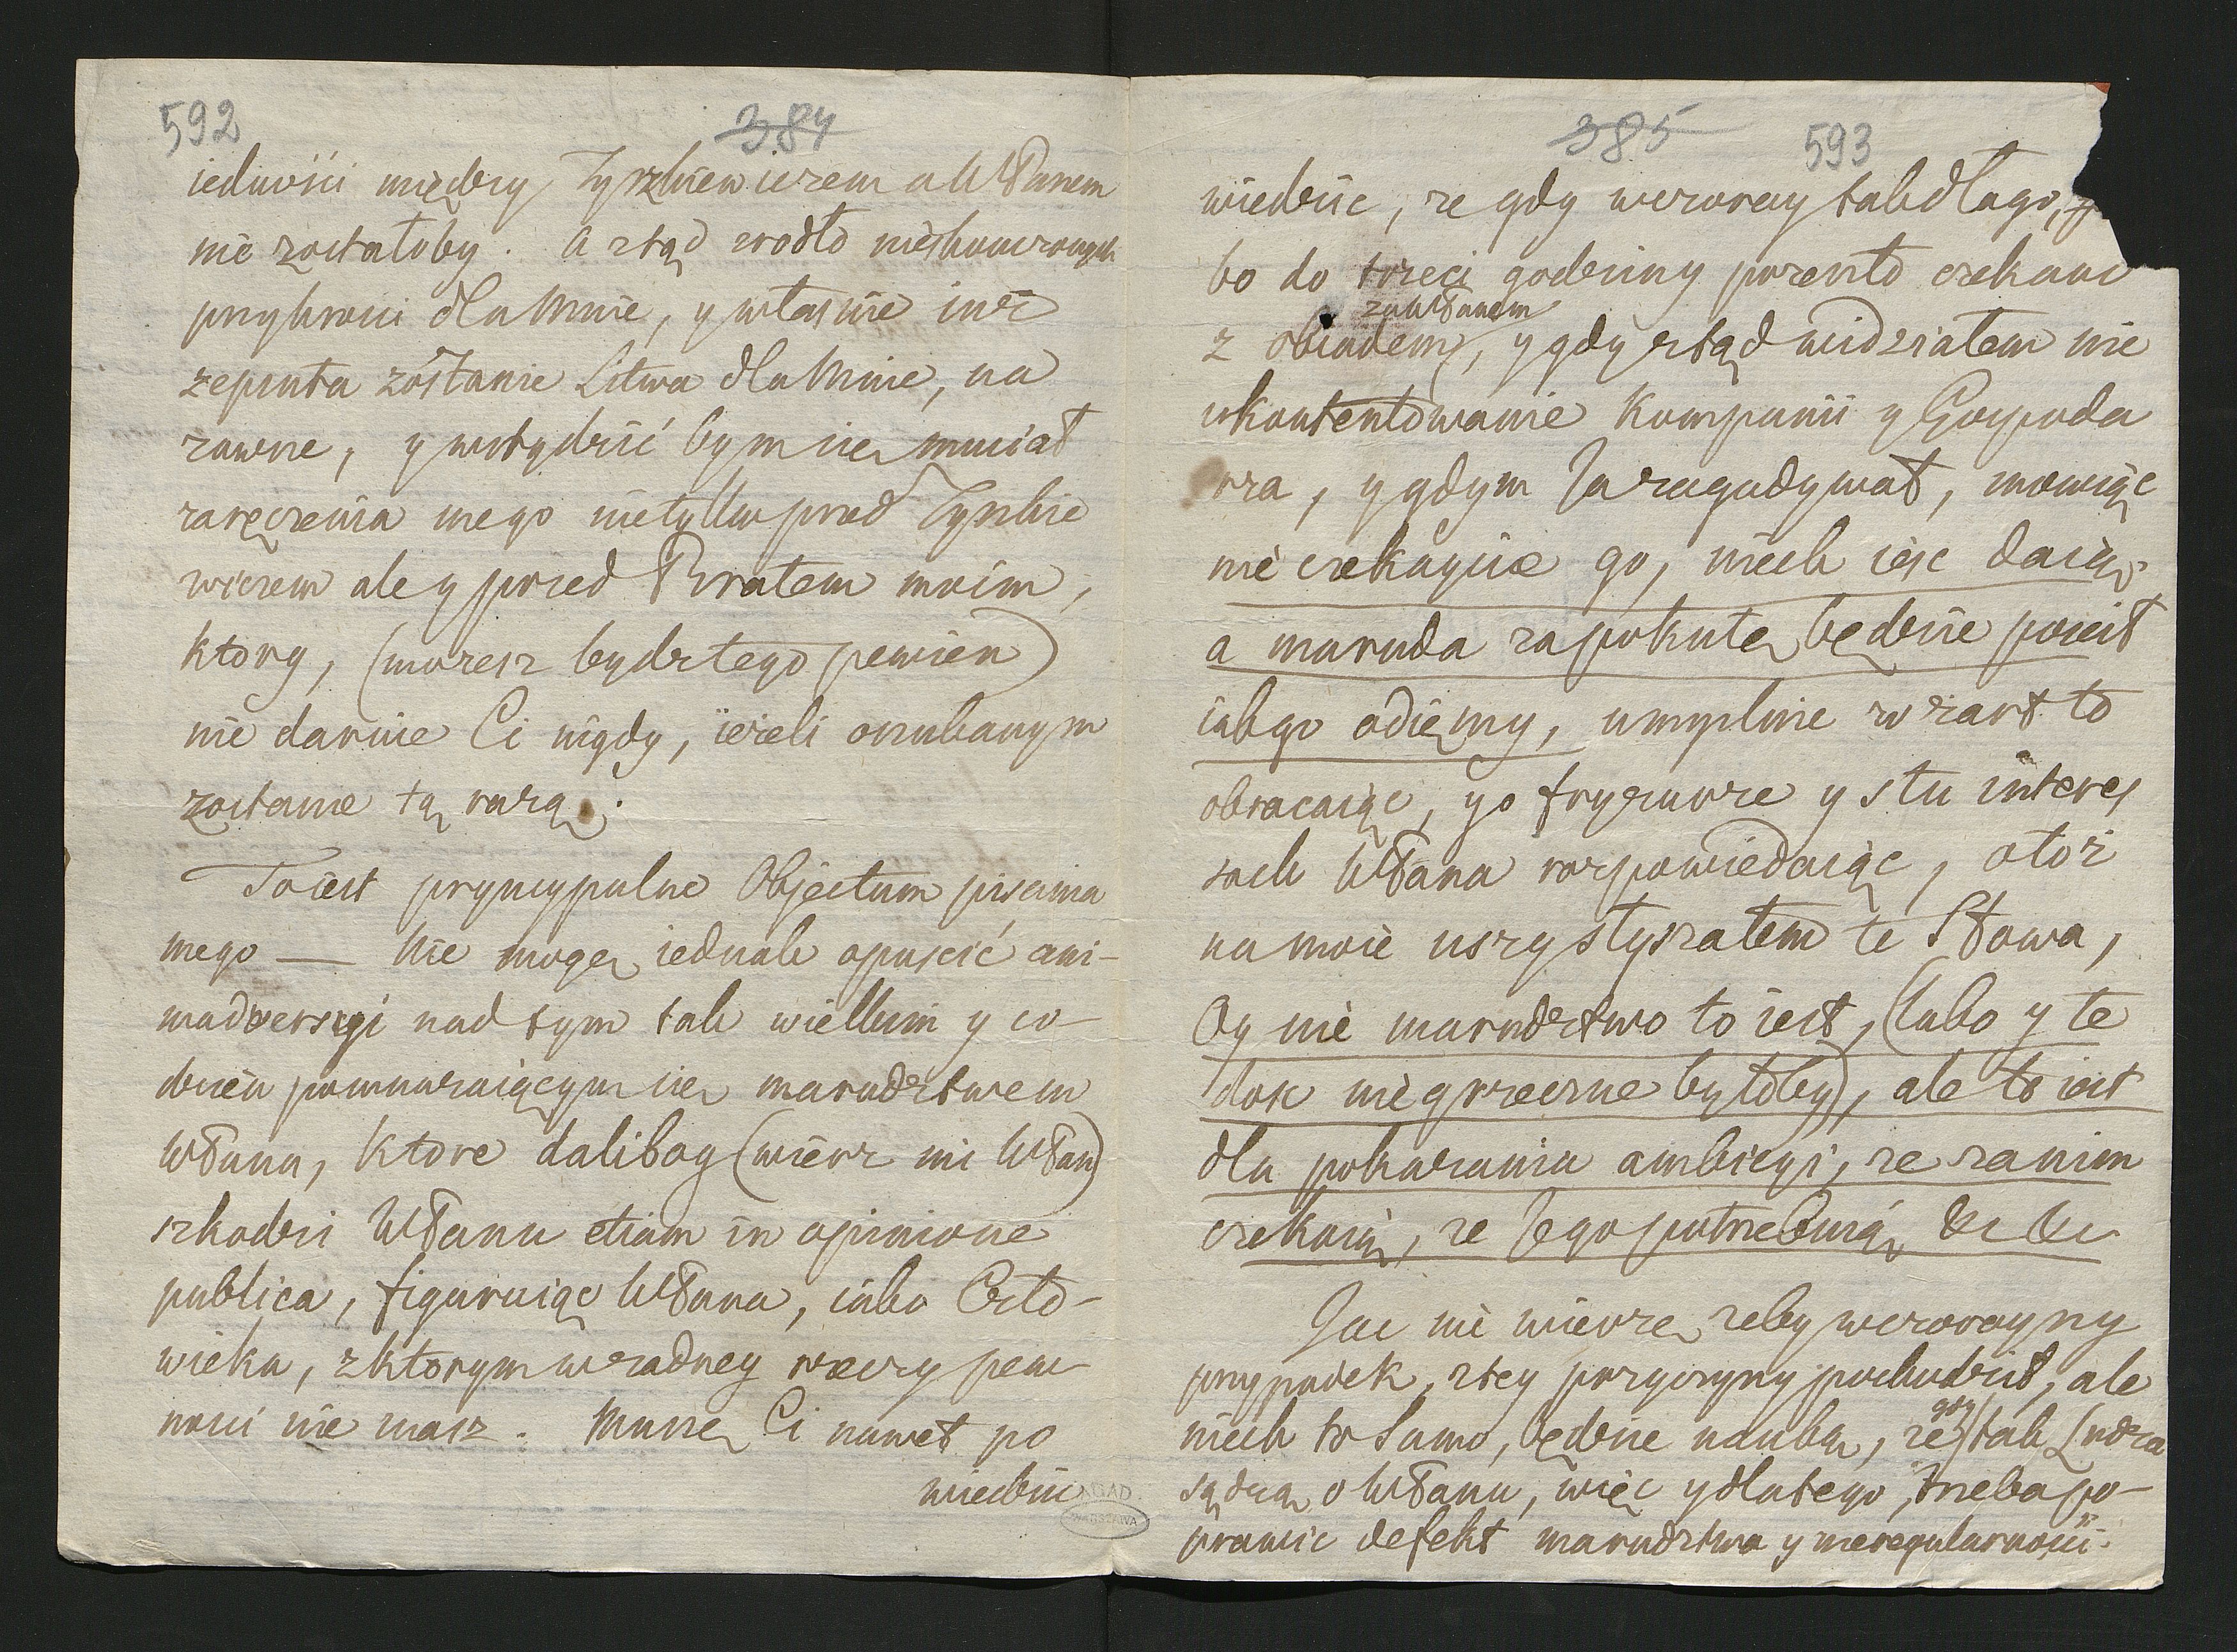 592
384
iednosci między Tyszkiewiczem a WPanem
nie zostałoby. A ztąd zrodło nieskonczonych
przykrosci dla Mnie, y własnie iuż
zepsuta zostanie Litwa dla Mnie, na
zawsze, y wstydzić bym się musiał
zaręczenia mego nietylko przed Tyszkie
wiczem ale y przed Bratem moim,
ktory, (mozesz bydz tego pewien)
nie daruie Ci nigdy, ieżeli oszukanym
zostanie tą razą.
To iest pryncypalne Objectum pisania
mego — Nie mogę iednak opuscić ani-
madwersyi nad tym tak wielkim y co-
dzień pomnarzaiącym się marudztwem
WPana, ktore dalibog (wierz mi WPan)
szkodzi WPanu etiam in opinione
publica, figuruiąc WPana, iako Czło-
wieka, z ktorym w zadney rzeczy pew-
nosci nie masz. Muszę Ci nawet po
wiedziec
AGAD
WARSZAWA
385
593
wiedziec, ze gdy wczoray tak długo,
bo do trzeci godziny przeszło czekano
za WPanem
z obiadem, y gdy ztąd widziałem nie
ukontentowanie Kompanii y Gospoda
rza, y gdym Ja zagadywał, mowiąc
nie czekaycie go, niech iesc daią,
a maruda za pokutę będzie poscił
iak go odiemy, umyslnie w zart to
obracaiąc, y o fryzurze y stu interes
sach WPana rozpowiedaiąc, otoż
na moie uszy słyszałem te Słowa,
Oy nie marudztwo to iest, (lubo y te
dosc niegrzeczne byłoby), ale to iest
dla pokazania ambicyi, ze za nim
czekaią, ze Jego potrzebuią &c &c
Jac nie wierzę zeby wczorayszy
przypadek, z tey przyczyny pochodził, ale
gdy
niech to samo, będzie nauką, ze tak Ludzie
sądzą o WPanu, więc y dlatego, trzeba po-
prawic defekt marudztwa y nieregularnosci.